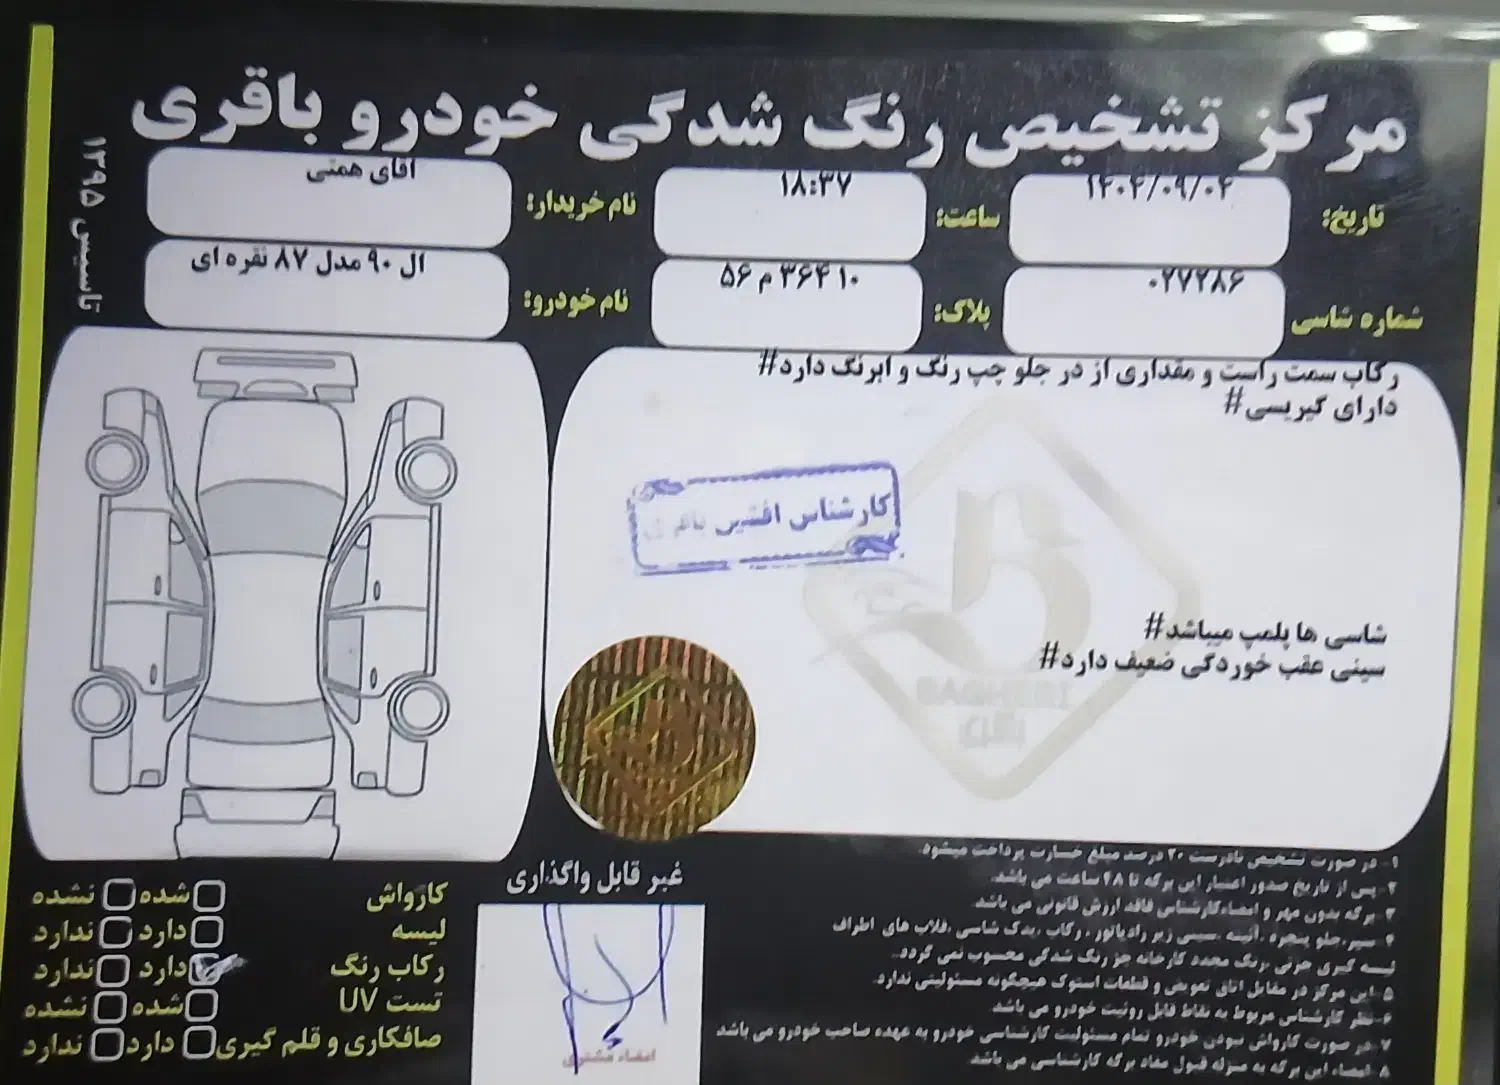 مرکز تشخیص رنگ شدگی خودرو باقری
تاسیس ۱۳۹۵
تاریخ: ۱۴۰۴/۰۹/۰۴
ساعت: ۱۸:۳۷
نام خریدار: اقای همتی
شماره شاسی ۰۲۷۲۸۶
پلاک: ۱۰ ۳۶۴ م ۵۶
نام خودرو: ال ۹۰ مدل ۸۷ نقره ای
رکاب سمت راست و مقداری از در جلو چپ رنگ و ابرنگ دارد#
دارای گیریسی#
کارشناس افشین باقری
شاسی ها پلمپ میباشد#
سینی عقب خوردگی ضعیف دارد#
BAGHERI
باقری
۱- در صورت تشخیص نادرست ۲۰ درصد مبلغ خسارت پرداخت میشود.
۲-پس از تاریخ صدور اعتبار این برگه تا ۴۸ ساعت می باشد.
۳-برگه بدون مهر و امضاء کارشناس فاقد ارزش قانونی می باشد.
۴-سپر،جلو پنجره ،آئینه ،سینی زیر رادیاتور ، رکاب ،یدک شاسی ،قلاب های اطراف
لیسه گیری جزئی ،رنگ مجدد کارخانه جز رنگ شدگی محسوب نمی گردد.
۵-این مرکز در مقابل اتاق تعویض و قطعات استوک هیچگونه مسئولیتی ندارد.
۶-نظر کارشناس مربوط به نقاط قابل روئیت خودرو می باشد.
۷-در صورت کارواش نبودن خودرو تمام مسئولیت کارشناسی خودرو به عهده صاحب خودرو می باشد
۸-امضاء این برگه به منزله قبول مفاد برگه کارشناسی می باشد.
غیر قابل واگذاری
امضاء مشتری
کارواش شده نشده
لیسه دارد ندارد
رکاب رنگ دارد ندارد
تست UV شده نشده
صافکاری و قلم گیری دارد ندارد